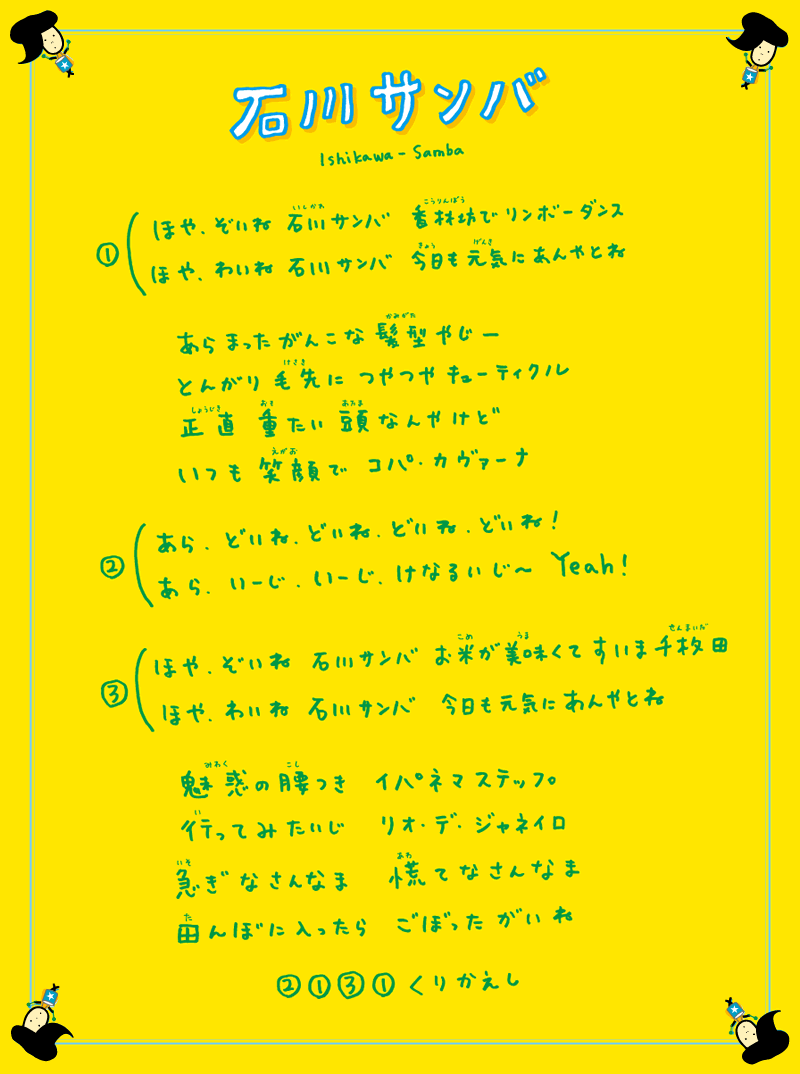 石川サンバ
Ishikawa-Samba
いしかわ こうりんぼう
① ほや、ぞいね 石川サンバ 香林坊でリンボーダンス
きょう げんき
ほや、わいね 石川サンバ 今日も元気にあんやとね
かみがた
あらまったがんこな髪型やじー
けさき
とんがり毛先に つやつやキューティクル
しょうじき おも あたま
正直 重たい 頭なんやけど
えがお
いつも笑顔で コパ・カヴァーナ
② あら、どいね、どいね、どいね、どいね!
あら、いーじ、いーじ、けなるいじ〜 Yeah!
こめ うま せんまいだ
③ ほや、ぞいね 石川サンバ お米が美味くてすいま千枚田
ほや、わいね 石川サンバ 今日も元気にあんやとね
みわく こし
魅惑の腰つき イパネマステップ
い
行ってみたいじ リオ・デ・ジャネイロ
いそ あわ
急ぎなさんなま 慌てなさんなま
た
田んぼに入ったら ごぼったがいね
②①③① くりかえし